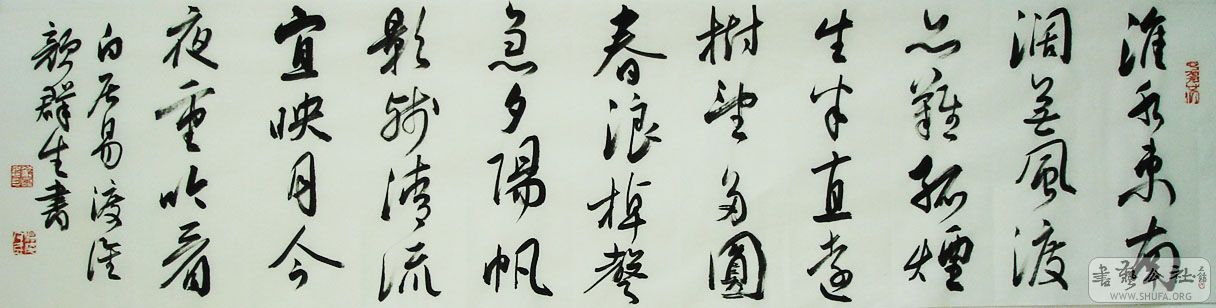 淮水東南
闊無風渡
亦難孤煙
生乍直遠
樹望多圓
春浪棹聲
急夕陽帆
影殘清流
宜映月今
夜重吟看
白居易渡淮
群生書
書藝公社
WWW.SHUFA.ORG